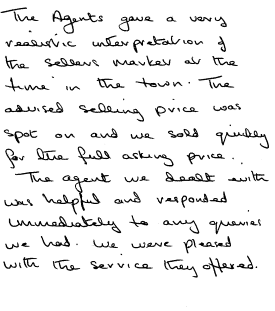 The Agents gave a very
realistic interpretation of
the sellers market at the
time in the town. The
advised selling price was
spot on and we sold quickly
for the full asking price..
The agent we dealt with
was helpful and responded
immediately to any queries
we had. We were pleased
with the service they offered.